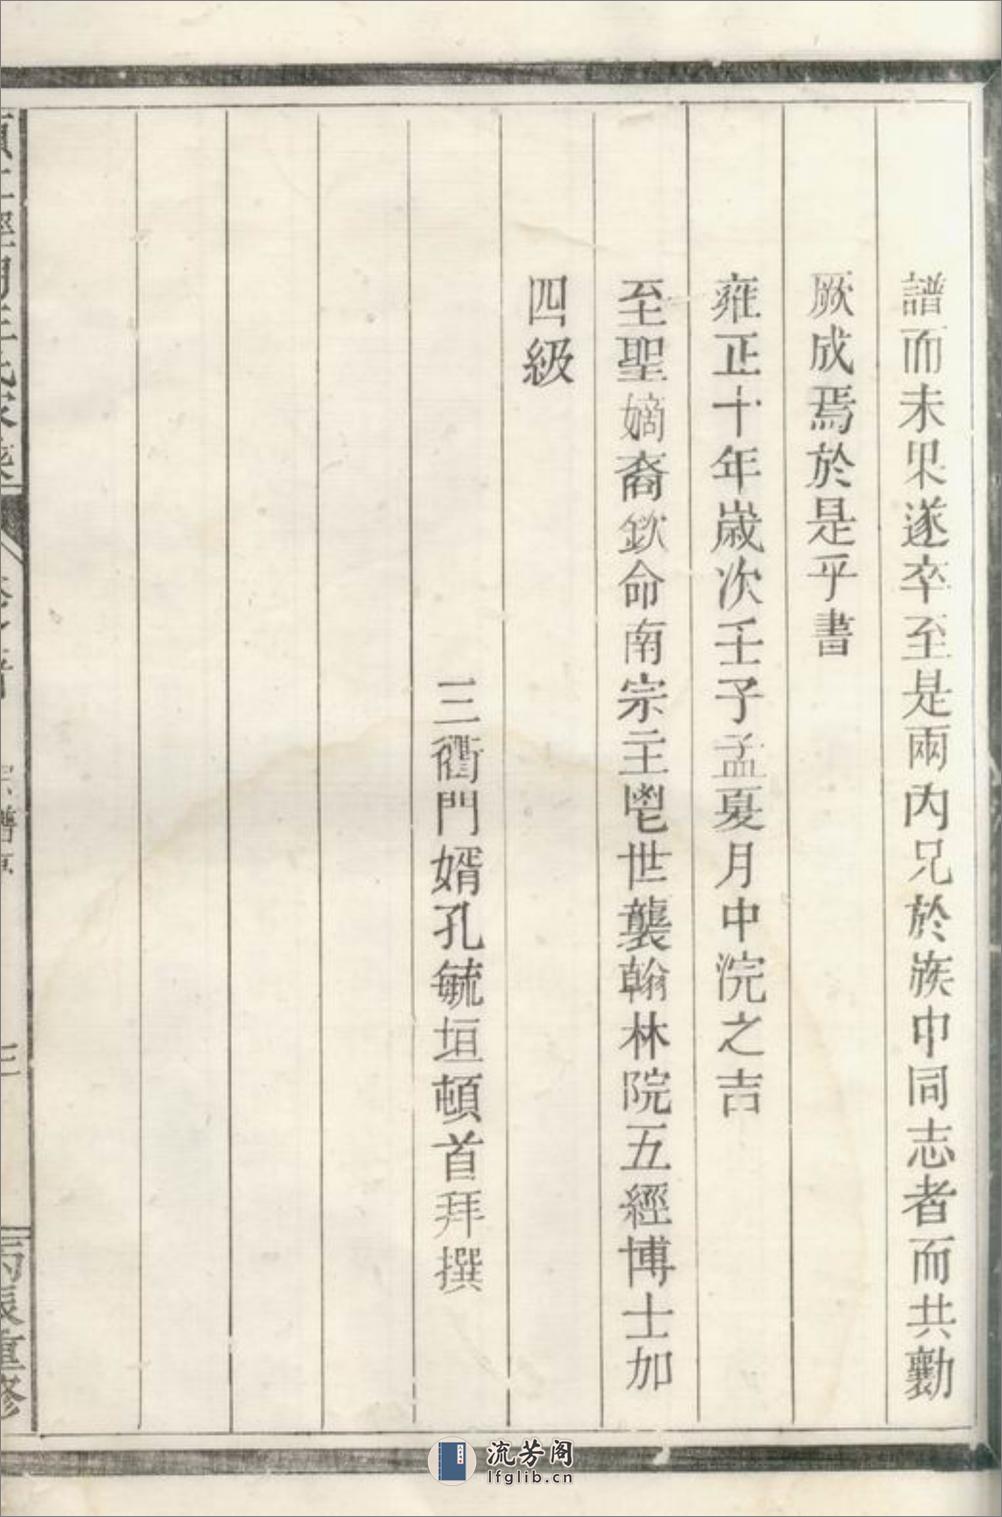 譜而未果遂卒至是兩内兄於族中同志者而共勷
厥成焉於是乎書
雍正十年歲次壬子孟夏月中浣之吉
至聖嫡裔欽命南宗主鬯世襲翰林院五經博士加
四級
三衢門婿孔毓垣頓首拜撰
宗譜序
三
丙辰重修
流芳阁
lfglib.cn